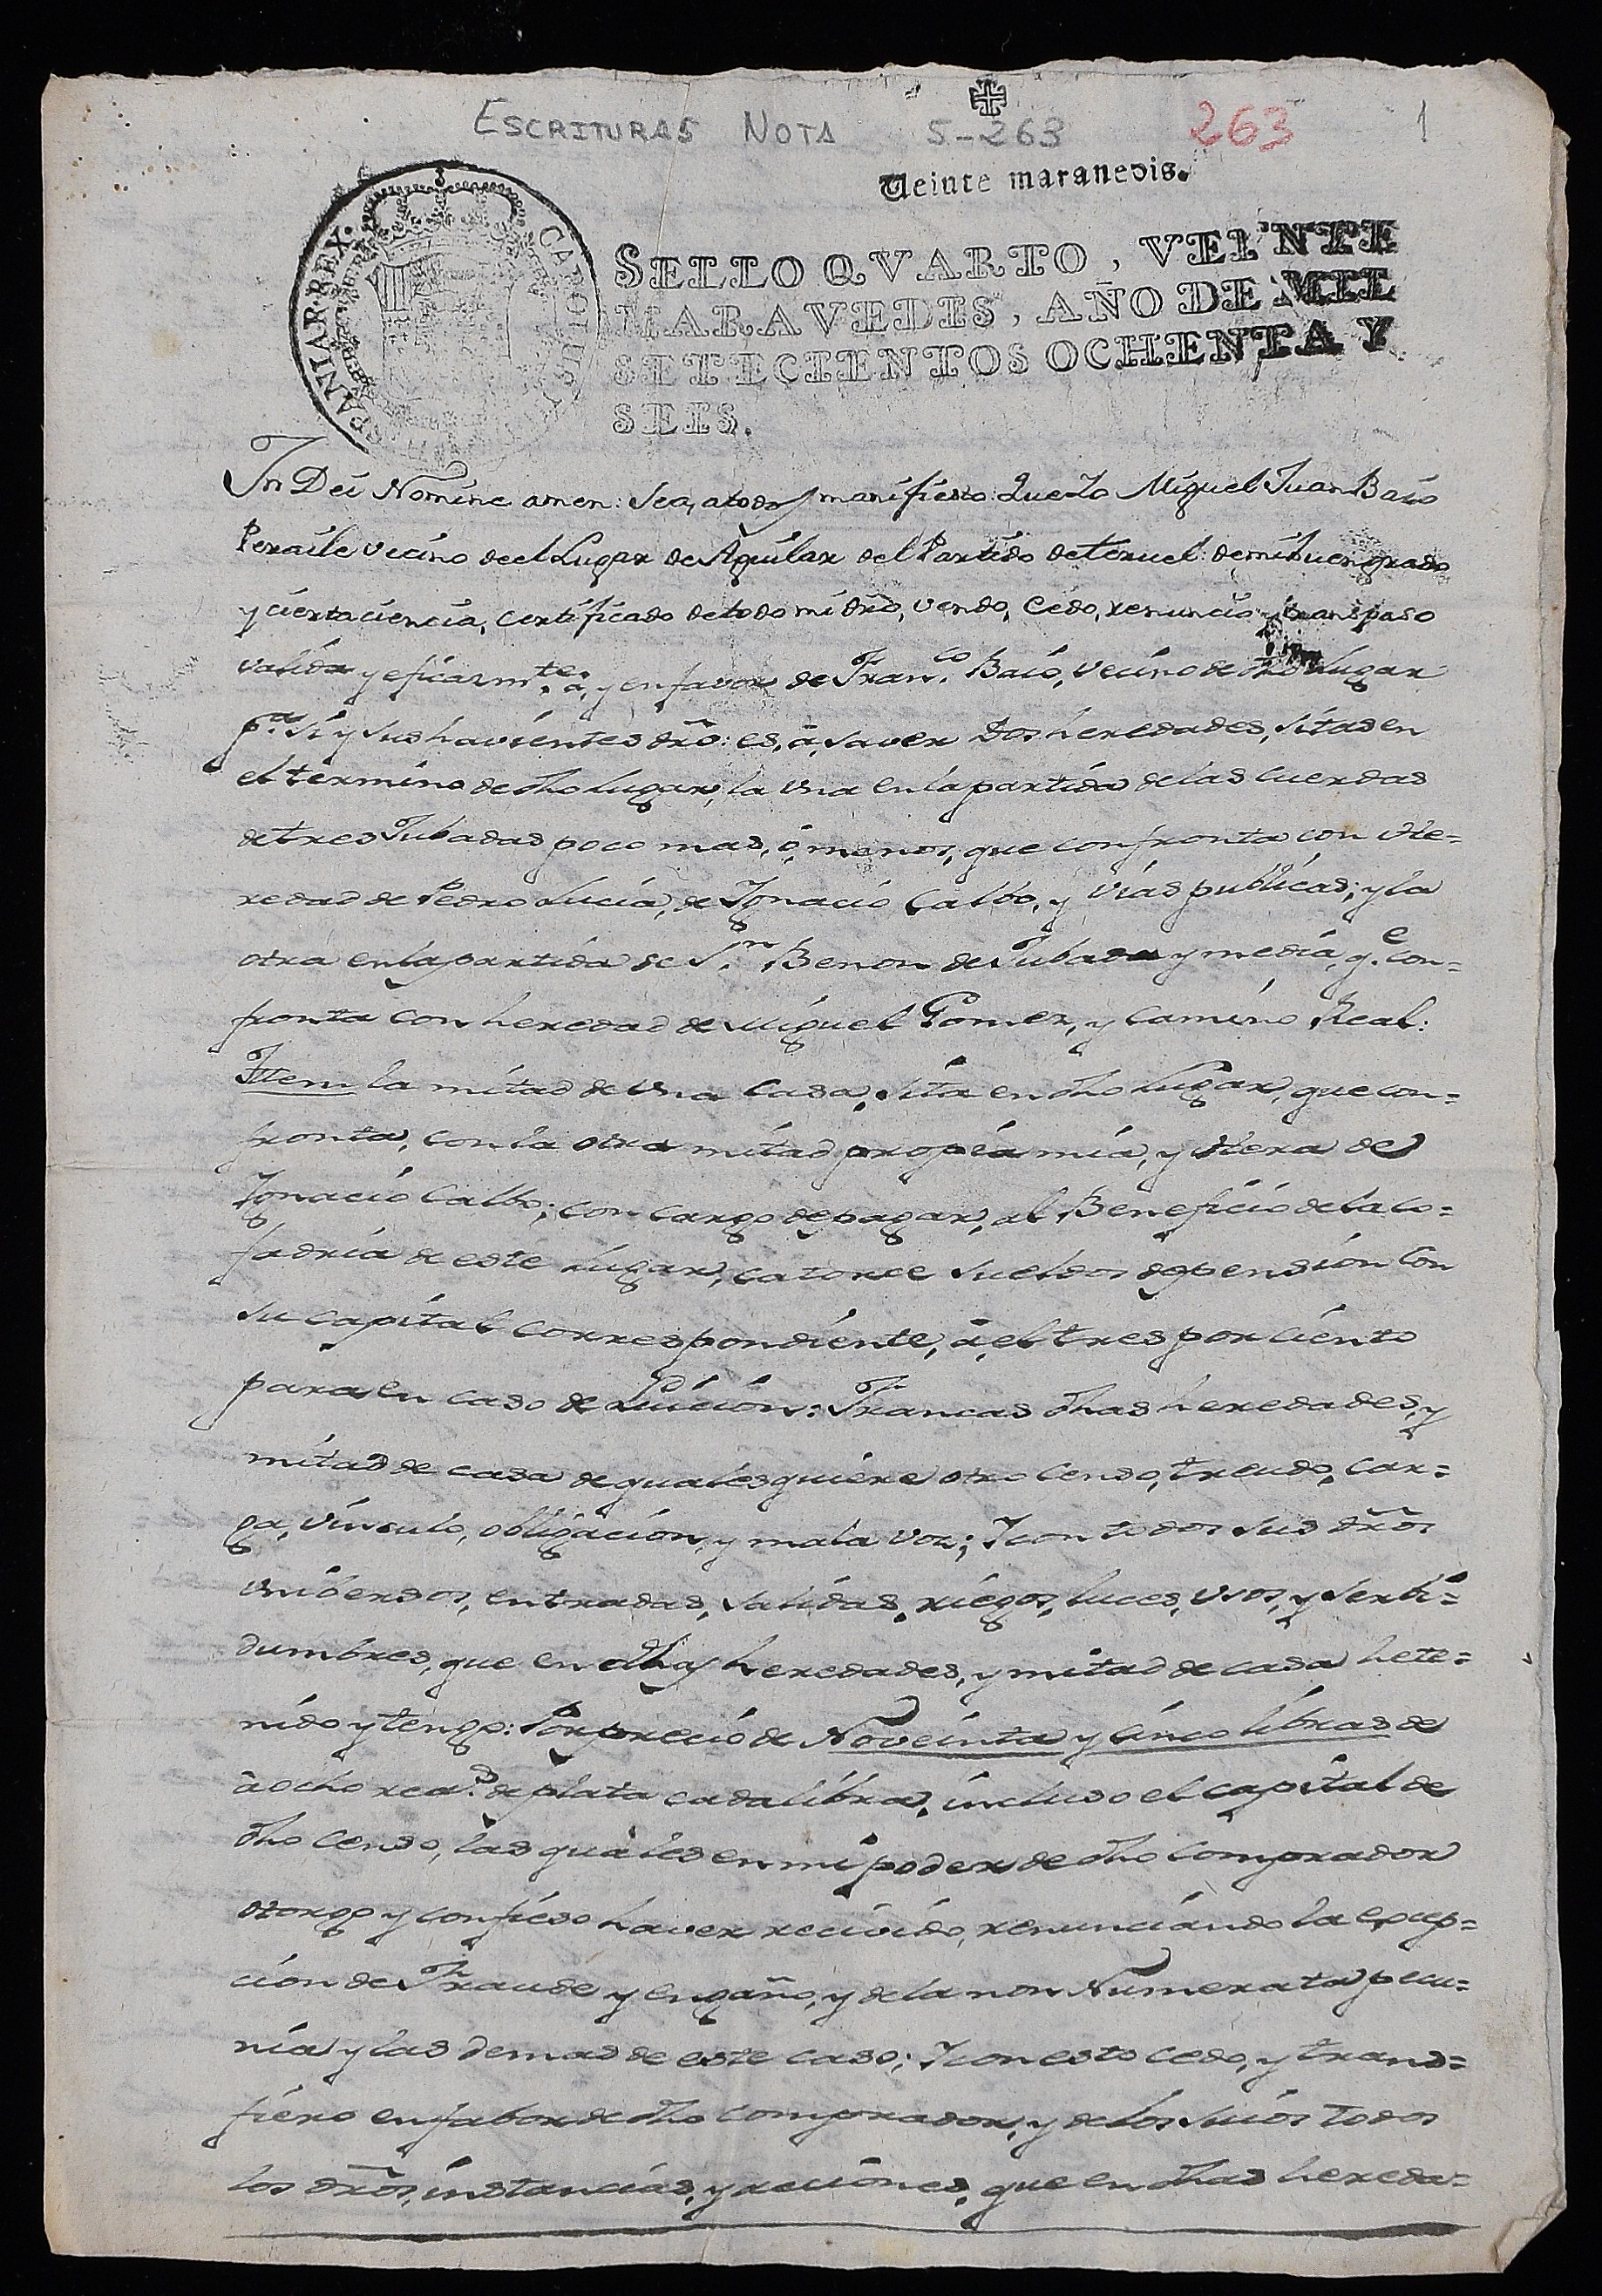 ESCRITURAS NOTA 5-263 263 1
Veinte maravedis.
SELLO QVARTO, VEINTE
MARAVEDIS, AÑO DE MIL
SETECIENTOS OCHENTA Y
SEIS.
In Dei Nomine amen: Sea, atodos manifiesto: Que Yo Miguel Juan Baio
Peraile vecino deel Lugar de Aguilar del Partido de Teruel: demi buen grado
y ciertaciencia, certificado detodo mi dřo, vendo, cedo, renuncio y transpaso
valida y eficazm.te a, y en favor de Fran.co Baio, vecino de dho Lugar
p.a si y sus havientes dřo: es, â, saver Dos heredades, sitas en
el termino de dho lugar, la vna en la partida de las cuerdas
de tres Jubadas poco mas, ó, menos, que confronta con He=
redad de Pedro Lucia, de Ygnacio Calbo, y vias publicas; y la
otra en la partida de S.n Benon de Jubada y media, q.e con=
fronta con heredad de Miguel Gomez, y Camino Real:
Ittem la mitad de vna Casa, sita en dho Lugar, que con=
fronta, con la otra mitad propia mia, y Hera de
Ygnacio Calbo; con cargo de pagar, al Beneficio de la Co=
fadria de este Lugar, catorce sueldos de pension con
su capital correspondiente, â, el tres por ciento
para en caso de Luicion: Francas dhas heredades, y
mitad de casa de qualesquiere otro Censo, treudo, car=
ga, vinculo, obligacion, y mala voz; Y con todos sus dřos
vniversos, entradas, salidas, riegos, luces, vsos, y serbi=
dumbres, que en dhas heredades, y mitad de casa he te=
nido y tengo: Por precio de Noveinta y cinco libras de
â ocho rea.s de plata cada libra, incluso el capital de
dho Censo, las quales en mi poder de dho Comprador
otorgo y confieso haver recivido, renunciando la excep=
cion de Fraude y engaño, y de la non Numerata pecu=
nia y las demas de este caso; Y con esto cedo, y trans=
fiero en fabor de dho comprador, y de los suios todos
los dřos, instancias, y acciones, que en dhas hereda=